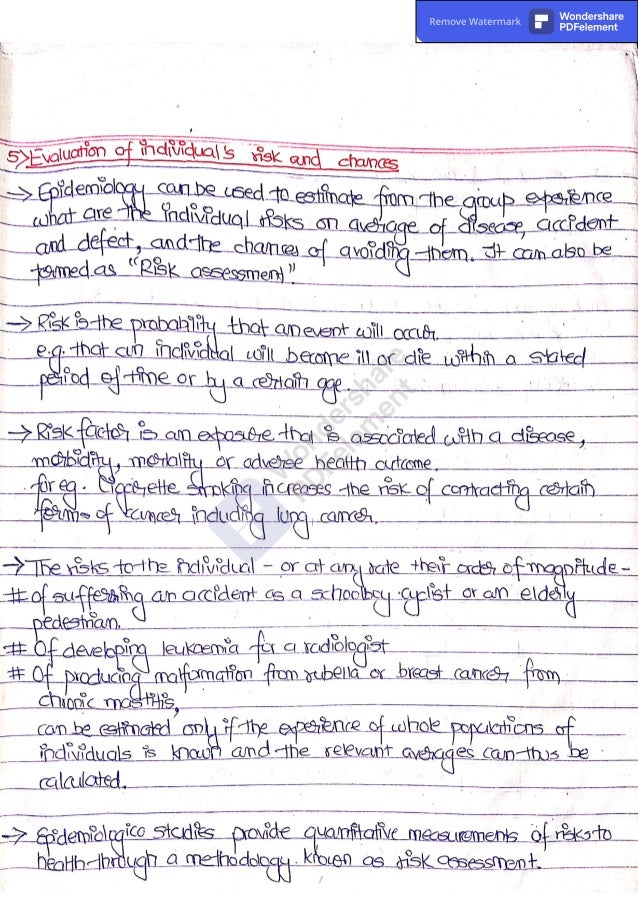 Remove Watermark
Wondershare
PDFelement
5) Evaluation of individual's risk and chances
→ Epidemiology can be used to estimate from the group experience
what are the individual risks on average of disease, accident
and defect, and the chances of avoiding them. It can also be
termed as "Risk assessment".
→ Risk is the probability that an event will occur.
e.g. that an individual will become ill or die within a stated
period of time or by a certain age.
→ Risk factor is an exposure that is associated with a disease,
morbidity, mortality or adverse health outcome.
for eg. Cigarette smoking increases the risk of contracting certain
forms of cancer including lung cancer.
→ The risks to the individual - or at any rate their order of magnitude -
# of suffering an accident as a schoolboy cyclist or an elderly
pedestrian.
# Of developing leukaemia for a radiologist
# Of producing malformation from rubella or breast cancer from
chronic mastitis,
can be estimated only if the experience of whole populations of
individuals is known and the relevant averages can thus be
calculated.
→ Epidemiologico studies provide quantitative measurements of risks to
health through a methodology known as risk assessment.
Wondershare
PDFelement